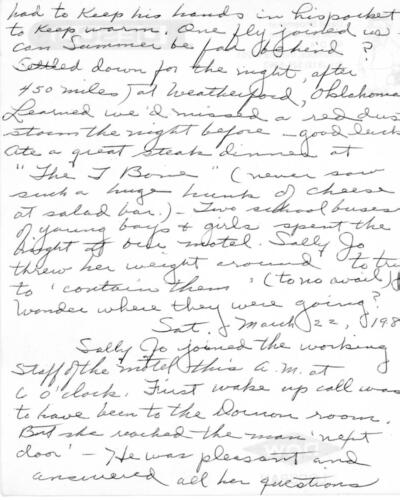 had to keep his hands in his pocket
to keep warm. One fly joined us -
can Summer be far behind?
Settled down for the night, after
450 miles, at Weatherford, Oklahoma
Learned we'd missed a red dus
storm the night before - good luck
ate a great steak dinner at
"The T Bone" (never saw
such a huge hunk of cheese
at salad bar.) - Two school buses
of young boys & girls spent the
night at our motel. Sally Jo
threw her weight around to try
to 'contain them' (to no avail)
Wonder where they were going?
Sat. March 22, 198
Sally Jo joined the working
Staff of the motel this A.M. at
6 o'clock. First wake up call was
to have been to the room.
But she reached the man 'next
door' - He was pleasant and
answered all her questions